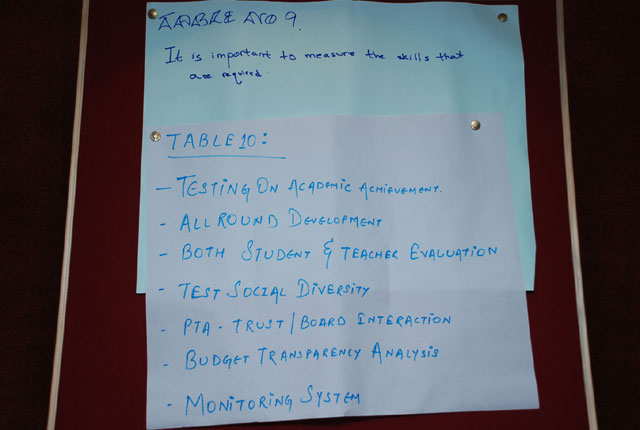 TABLE NO 9.
It is important to measure the skills that
are required.
TABLE 10:
- TESTING ON ACADEMIC ACHIEVEMENT.
- ALL ROUND DEVELOPMENT
- BOTH STUDENT & TEACHER EVALUATION
- TEST SOCIAL DIVERSITY
- PTA - TRUST / BOARD INTERACTION
- BUDGET TRANSPARENCY ANALYSIS
- MONITORING SYSTEM